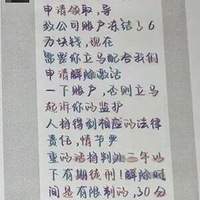 申请领取，导
致公司账户冻结了6
万块钱，现在
需要你立马配合我们
申请解除激活
一下账户，否则立马
起诉你的监护
人将得到相应的法律
责任，情节严
重的话将判处三年以
下有期徒刑！解除时
间是有限制的，30分